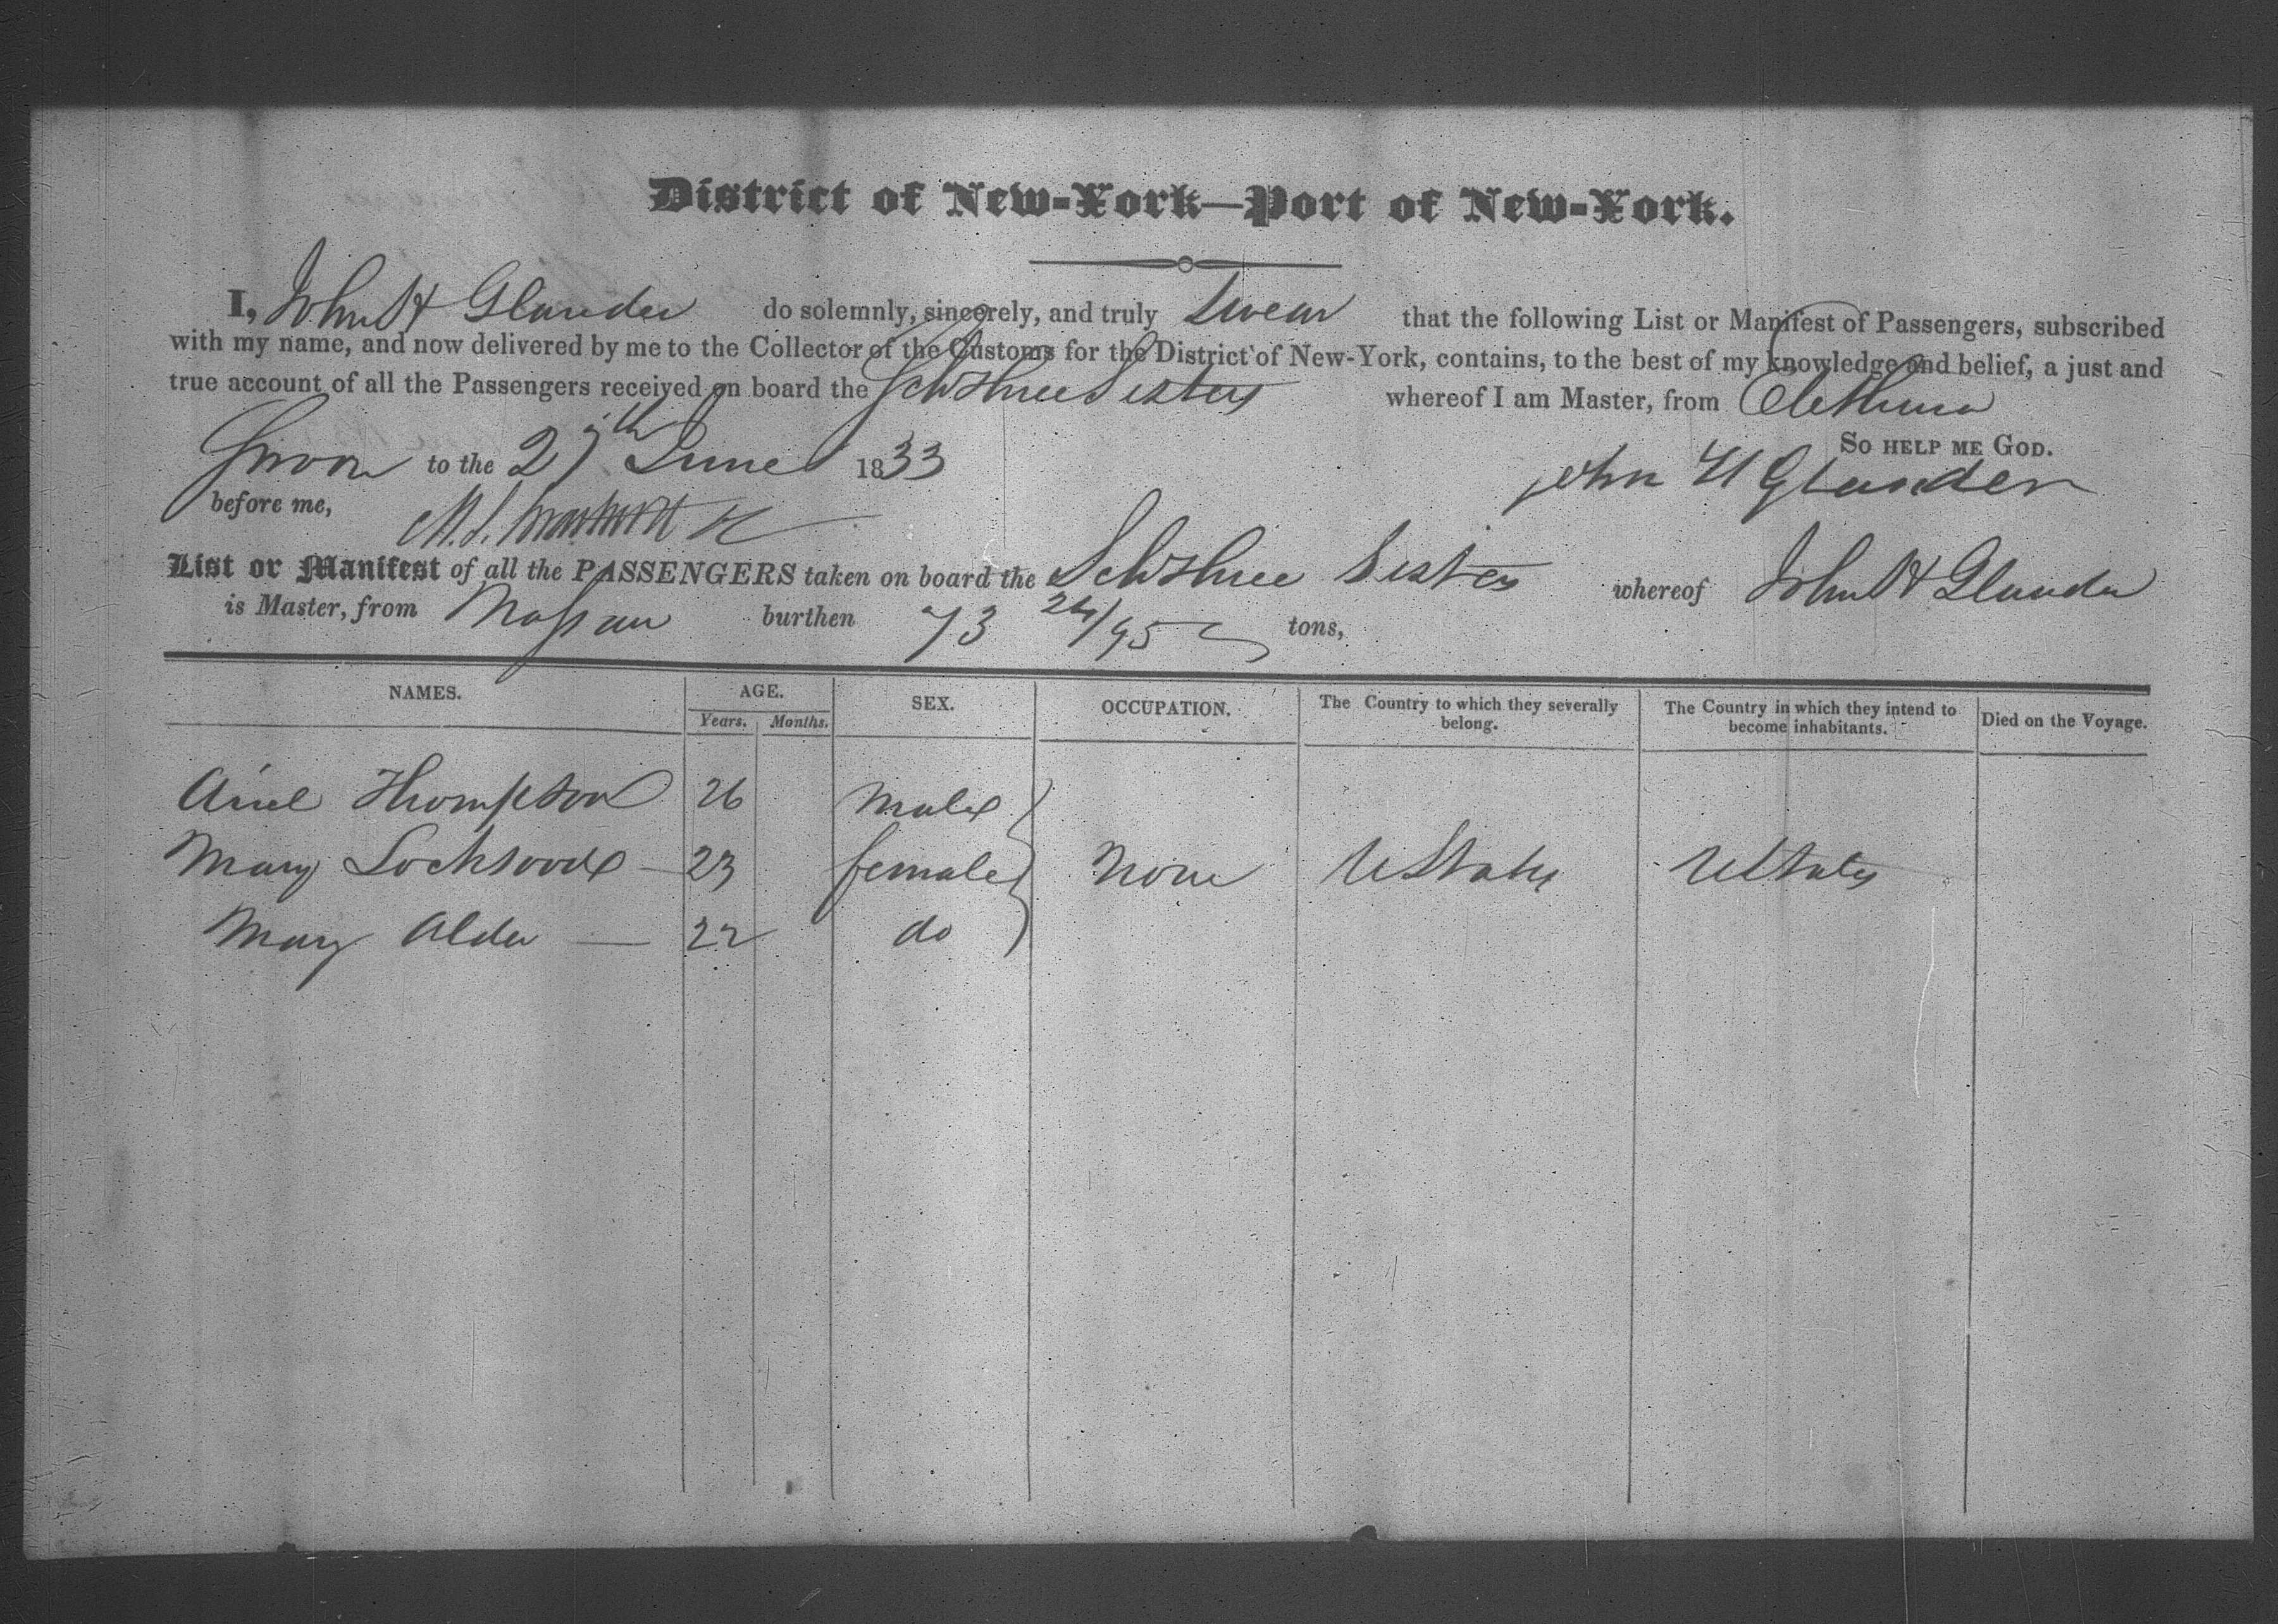 District of New-York—Port of New-York.
I, John H Glander do solemnly, sincerely, and truly Swear that the following List or Manifest of Passengers, subscribed
with my name, and now delivered by me to the Collector of the Customs for the District of New-York, contains, to the best of my knowledge and belief, a just and
true account of all the Passengers received on board the Schr Three Sisters whereof I am Master, from
So help me God.
Sworn to the 27th June 1833
John H Glander
before me,
List or Manifest of all the PASSENGERS taken on board the Schr Three Sisters whereof John H Glander
is Master, from Nassau burthen 73 24/95 tons,
NAMES. AGE. SEX. OCCUPATION. The Country to which they severally belong. The Country in which they intend to become inhabitants. Died on the Voyage.
Years. Months.
Thompson 26 Male
Mary Lockwood 23 female None UStates UStates
Mary Alder 22 do